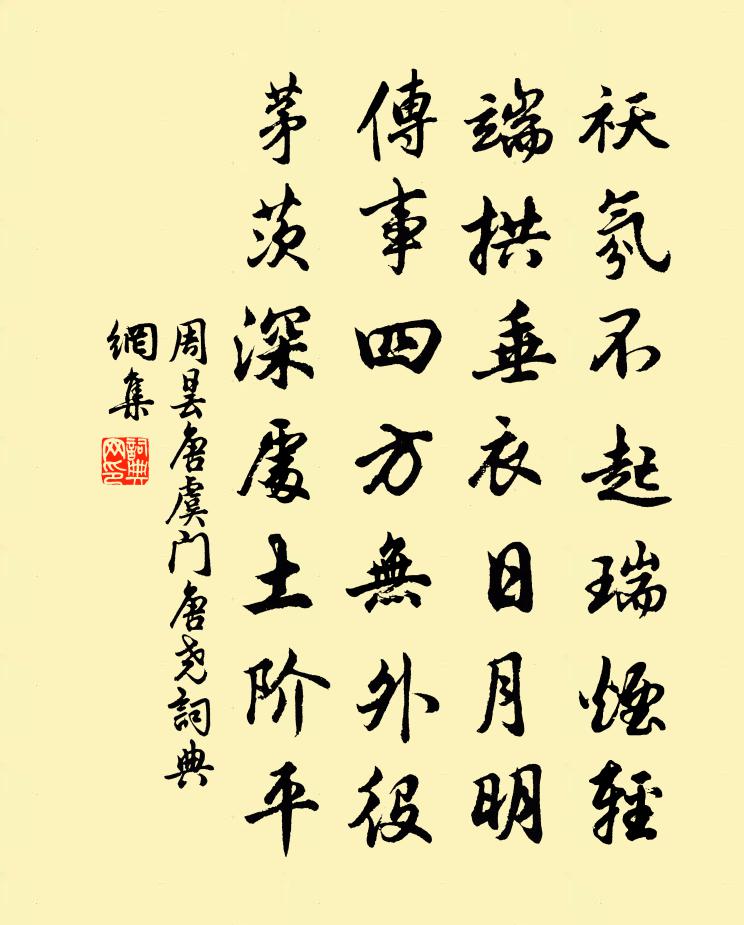 祆氛不起瑞煙輕
端拱垂衣日月明
傳事四方無外役
茅茨深處土阶平
周曇唐虞門唐尧詞典
網集
詞典
网印